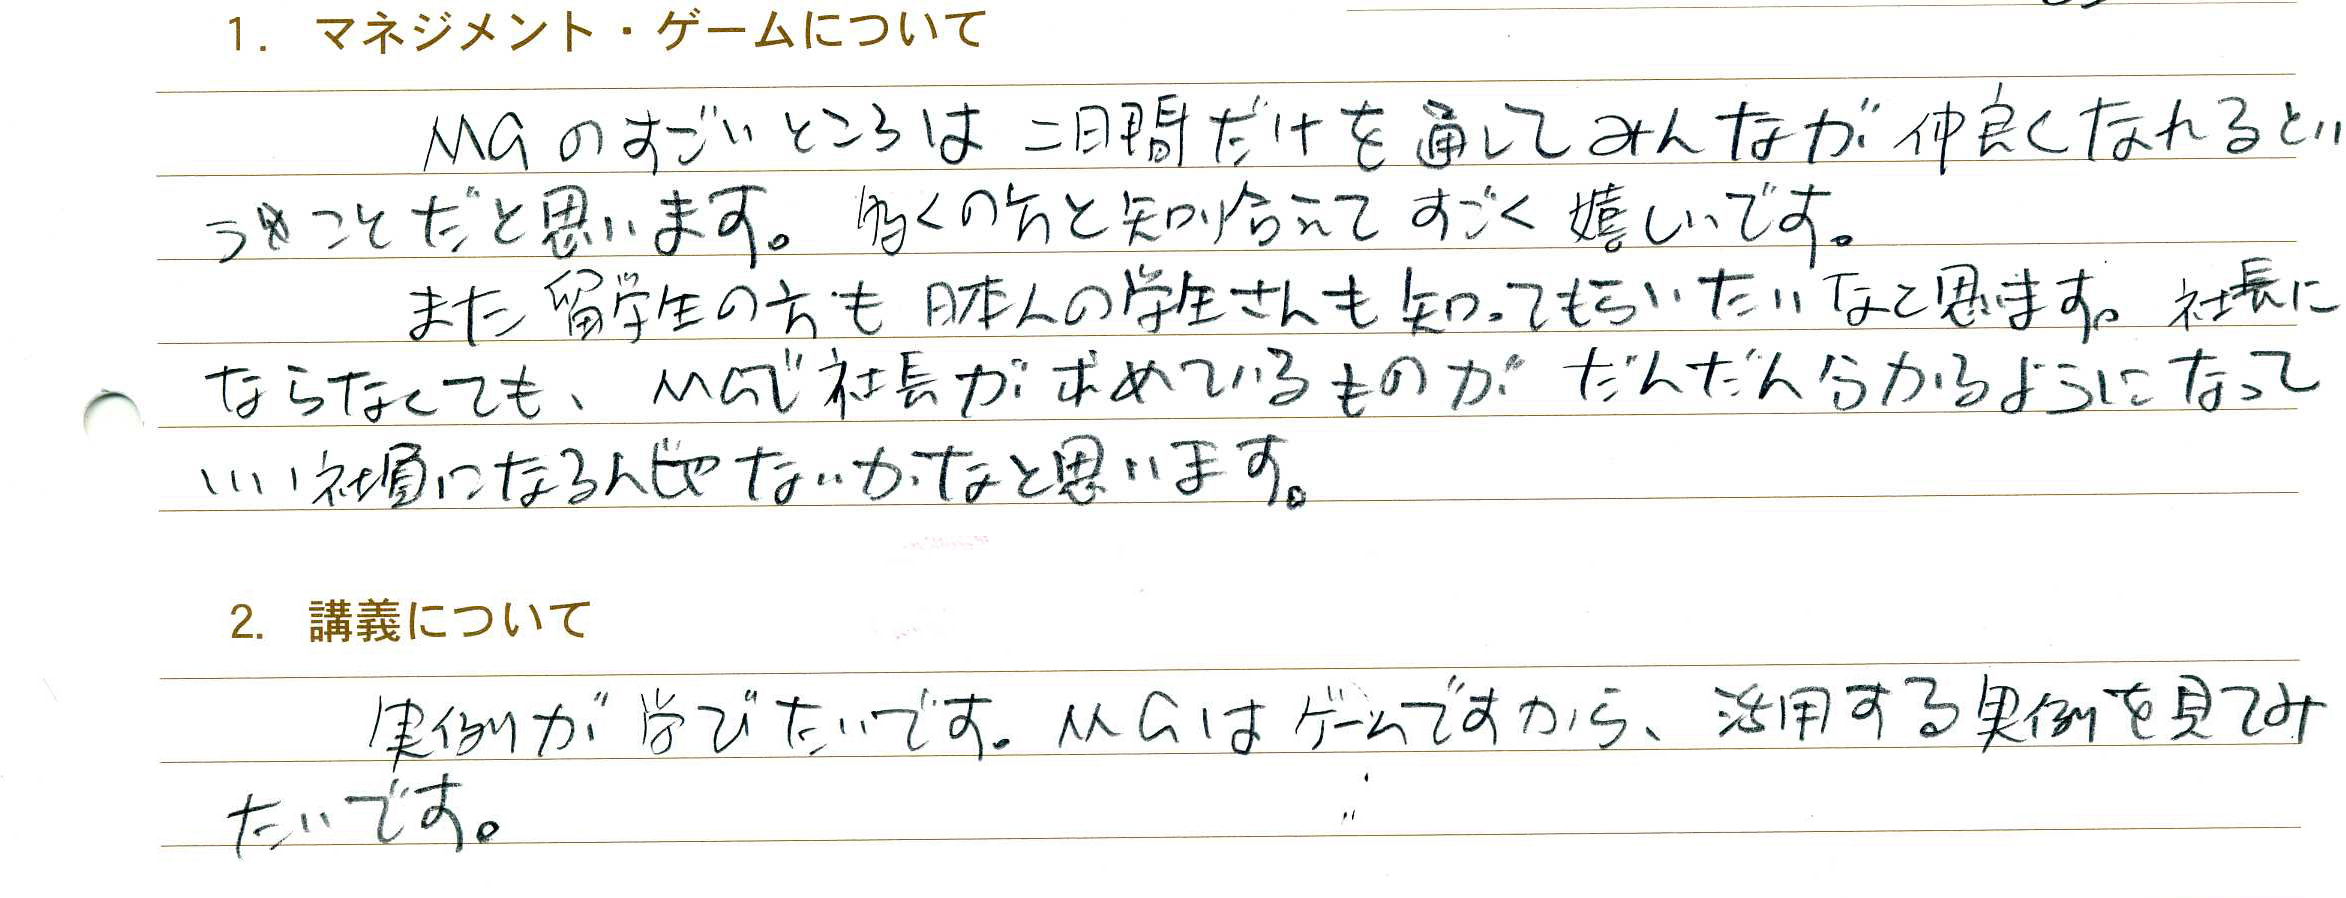 1. マネジメント・ゲームについて
MGのすごいところは二日間だけを通してみんなが仲良くなれるとい
うことだと思います。多くの方と知り合えてすごく嬉しいです。
また留学生の方も日本人の学生さんも知ってもらいたいなと思います。社長に
ならなくても、MGで社長が求めているものがだんだん分かるようになって
いい社員になるんじゃないかなと思います。
2. 講義について
実例が学びたいです。MGはゲームですから、活用する実例を見てみ
たいです。